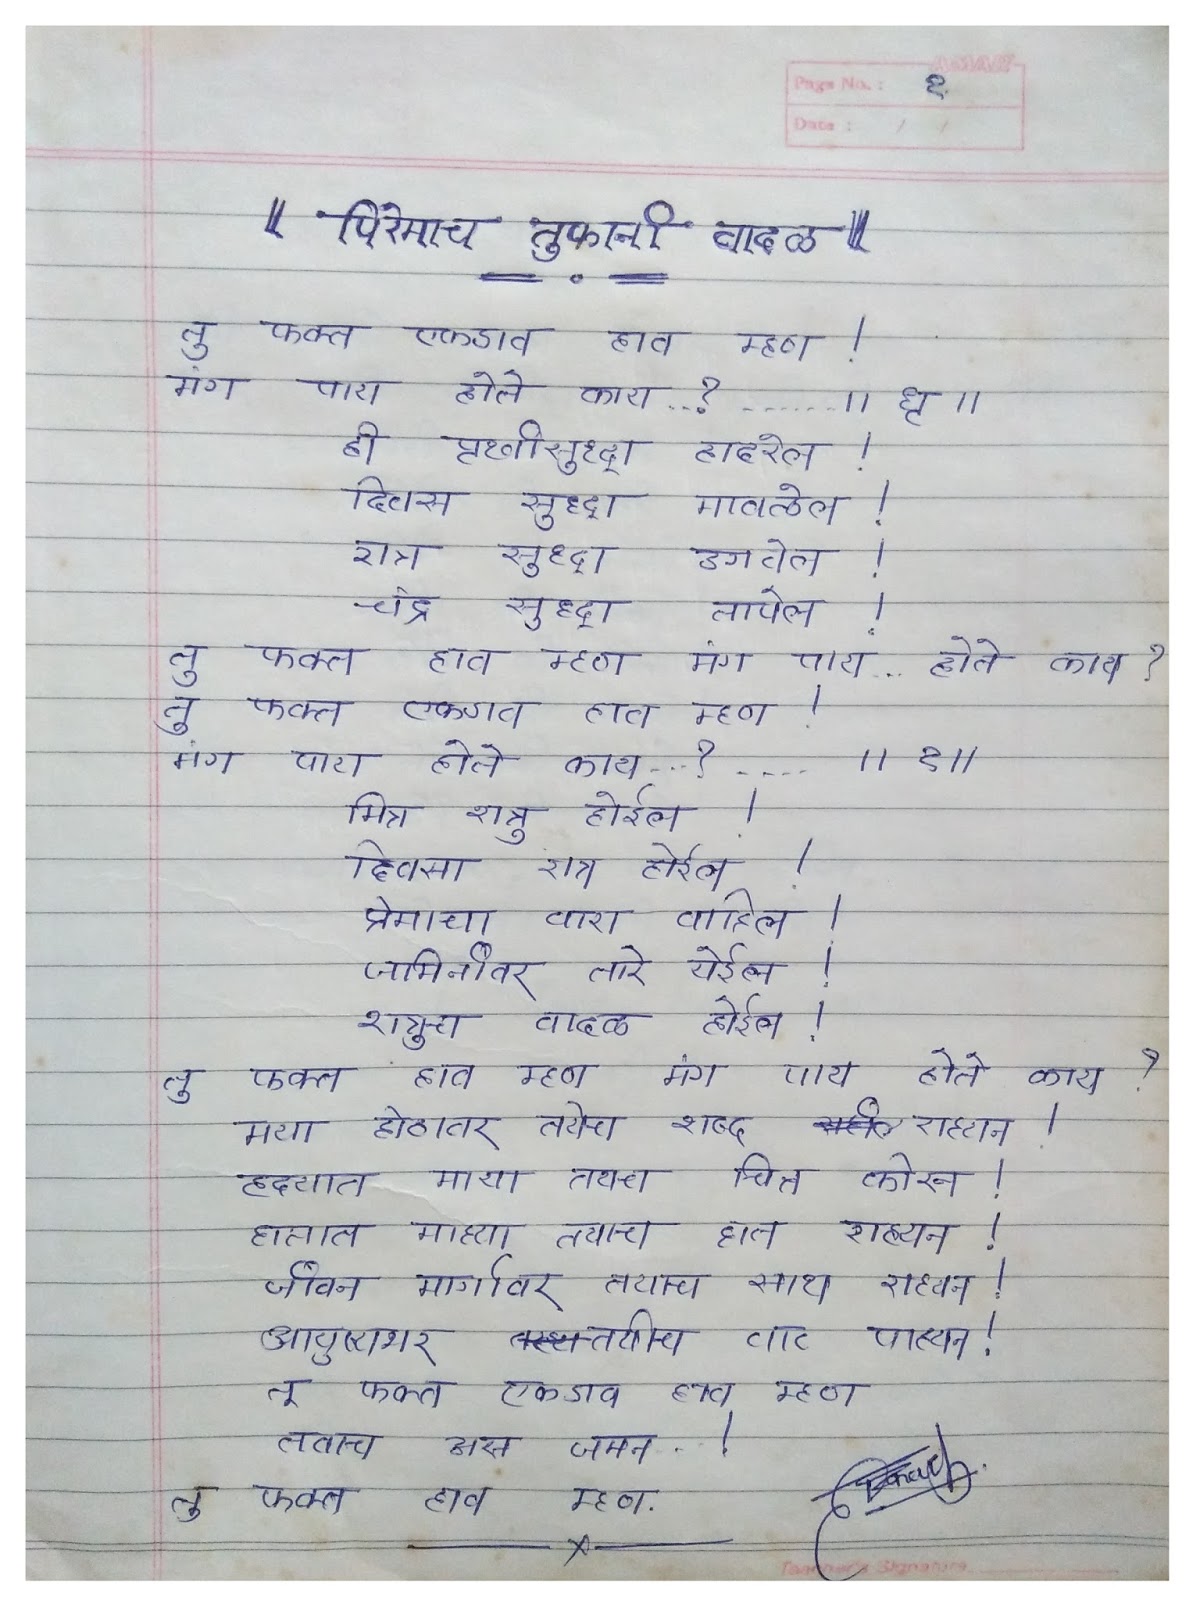 Page No.: १
Date : / /
॥ पिरेमाच तुफानी वादळ ॥
तु फक्त एकडाव हाव म्हण !
मंग पाय होते काय...? ....... ॥ धृ ॥
ही पृथ्वीसुध्द्रा हादरेल !
दिवस सुध्द्रा मावळेल !
रात्र सुध्द्रा उगवेल !
चंद्र सुध्द्रा तापेल !
तु फक्त हाव म्हण मंग पाय... होते काय ?
तु फक्त एकडाव हाव म्हण !
मंग पाय होते काय...? .... ॥ १ ॥
मित्र शत्रु होईल !
दिवसा रात्र होईल !
प्रेमाचा वारा वाहिल !
जमिनीवर तारे येईल !
शत्रुच वादळ होईल !
तु फक्त हाव म्हण मंग पाय होते काय ?
मया होठावर तयेच शब्द राहयन !
हृदयात माया तयच चित्र कोरन !
हातात माह्या तयाच हात राहयन !
जीवन मार्गावर तयाच साथ राहयन !
आयुष्यभर तयीच वाट पाहयन !
तू फक्त एकडाव हाव म्हण
तवाच अस जमन...!
तु फक्त हाव म्हण.
Teacher's Signature